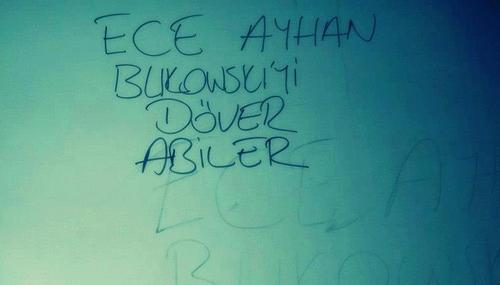 ECE AYHAN
BUKOWSKİ'Yİ
DÖVER
ABİLER
ECE AY
BUKOWS